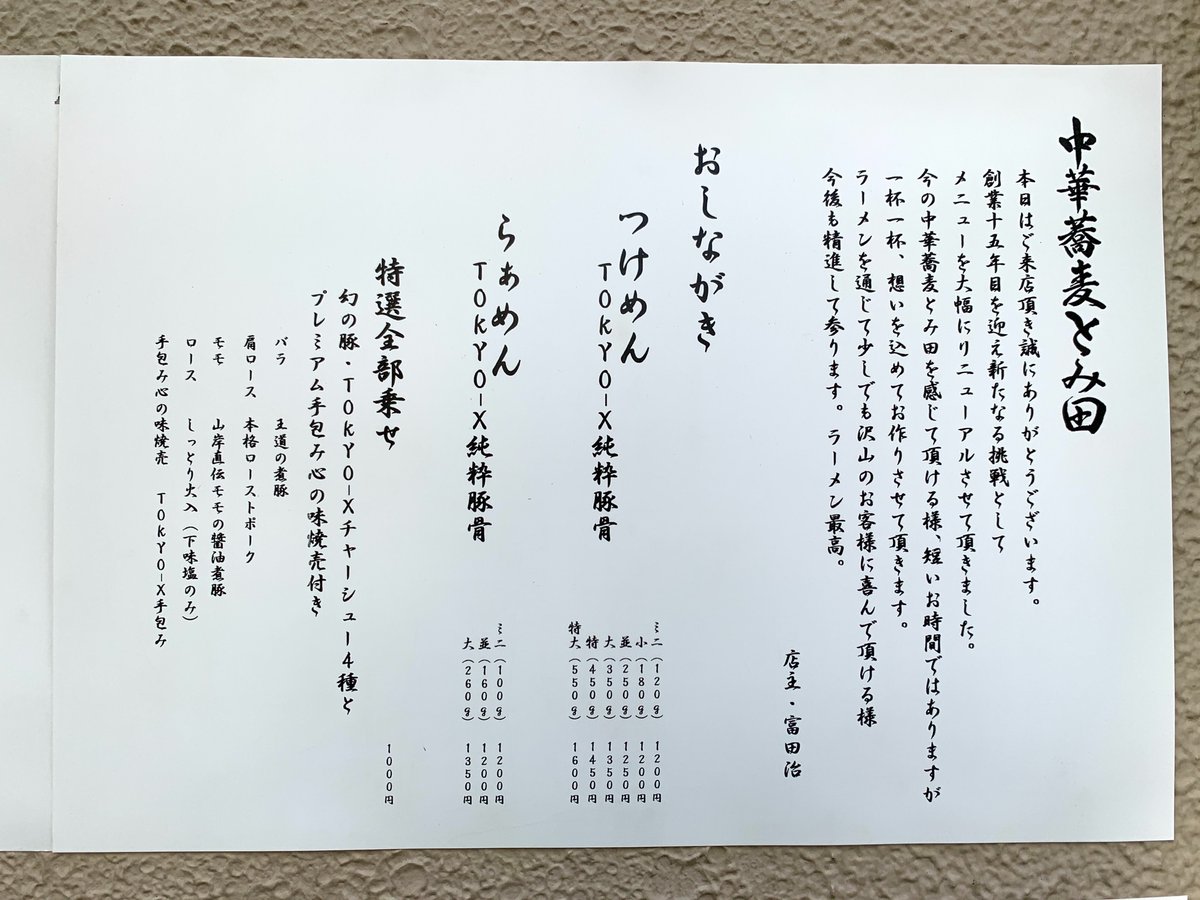 中華蕎麦とみ田
本日はご来店頂き誠にありがとうございます。
創業十五年目を迎え新たなる挑戦として
メニューを大幅にリニューアルさせて頂きました。
今の中華蕎麦とみ田を感じて頂ける様、短いお時間ではありますが
一杯一杯、想いを込めてお作りさせて頂きます。
ラーメンを通じて少しでも沢山のお客様に喜んで頂ける様
今後も精進して参ります。ラーメン最高。
店主・富田治
おしながき
つけめん
TOKYO-X純粋豚骨
ミニ(120g) 1200円
小(180g) 1200円
並(250g) 1250円
大(350g) 1350円
特(450g) 1450円
特大(550g) 1600円
らぁめん
TOKYO-X純粋豚骨
ミニ(100g) 1200円
並(160g) 1200円
大(260g) 1350円
特選全部乗せ 1000円
幻の豚・TOKYO-Xチャーシュー4種と
プレミアム手包み心の味焼売付き
バラ 王道の煮豚
肩ロース 本格ローストポーク
モモ 山岸直伝モモの醤油煮豚
ロース しっとり火入(下味塩のみ)
手包み心の味焼売 TOKYO-X手包み